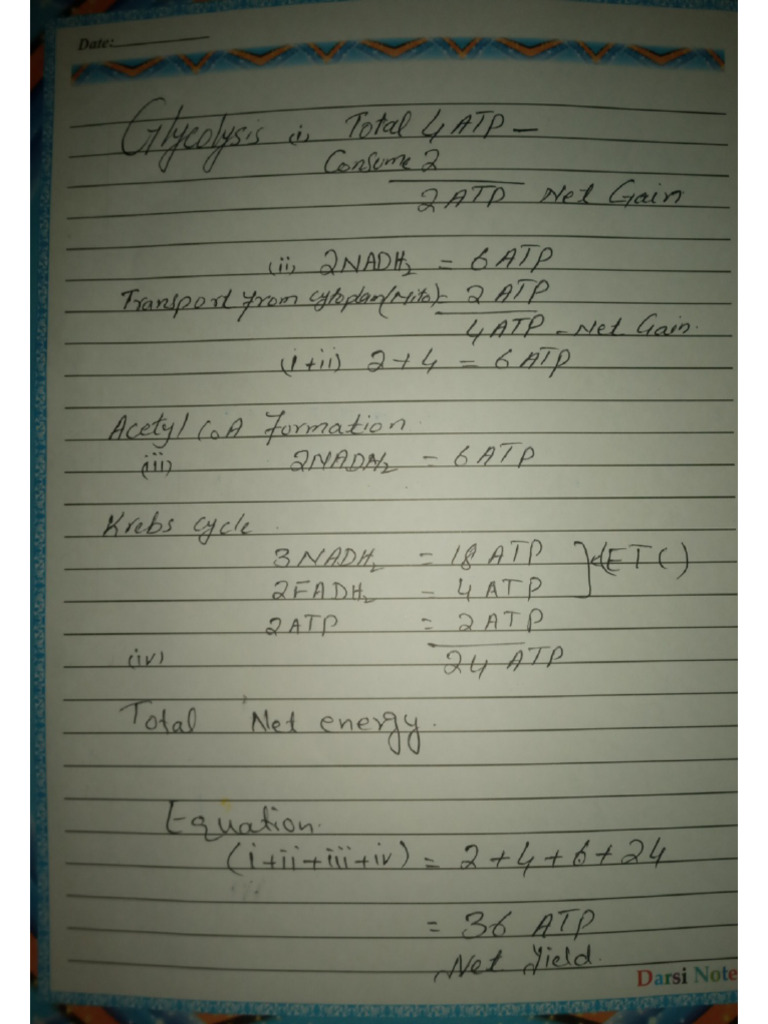 Date:
Glycolysis (i) Total 4 ATP -
Consume 2
2 ATP Net Gain
(ii) 2NADH₂ = 6 ATP
Transport from cytoplam (Mito) = 2 ATP
4 ATP - Net Gain.
(i+ii) 2+4 = 6 ATP
Acetyl CoA Formation
(iii) 2NADH₂ = 6 ATP
Krebs cycle
3NADH₂ = 18 ATP
2FADH₂ - 4 ATP
(ETC)
2ATP = 2 ATP
(iv) 24 ATP
Total Net energy.
Equation.
(i+ii+iii+iv) = 2+4+6+24
= 36 ATP
Net Yield.
Darsi Note